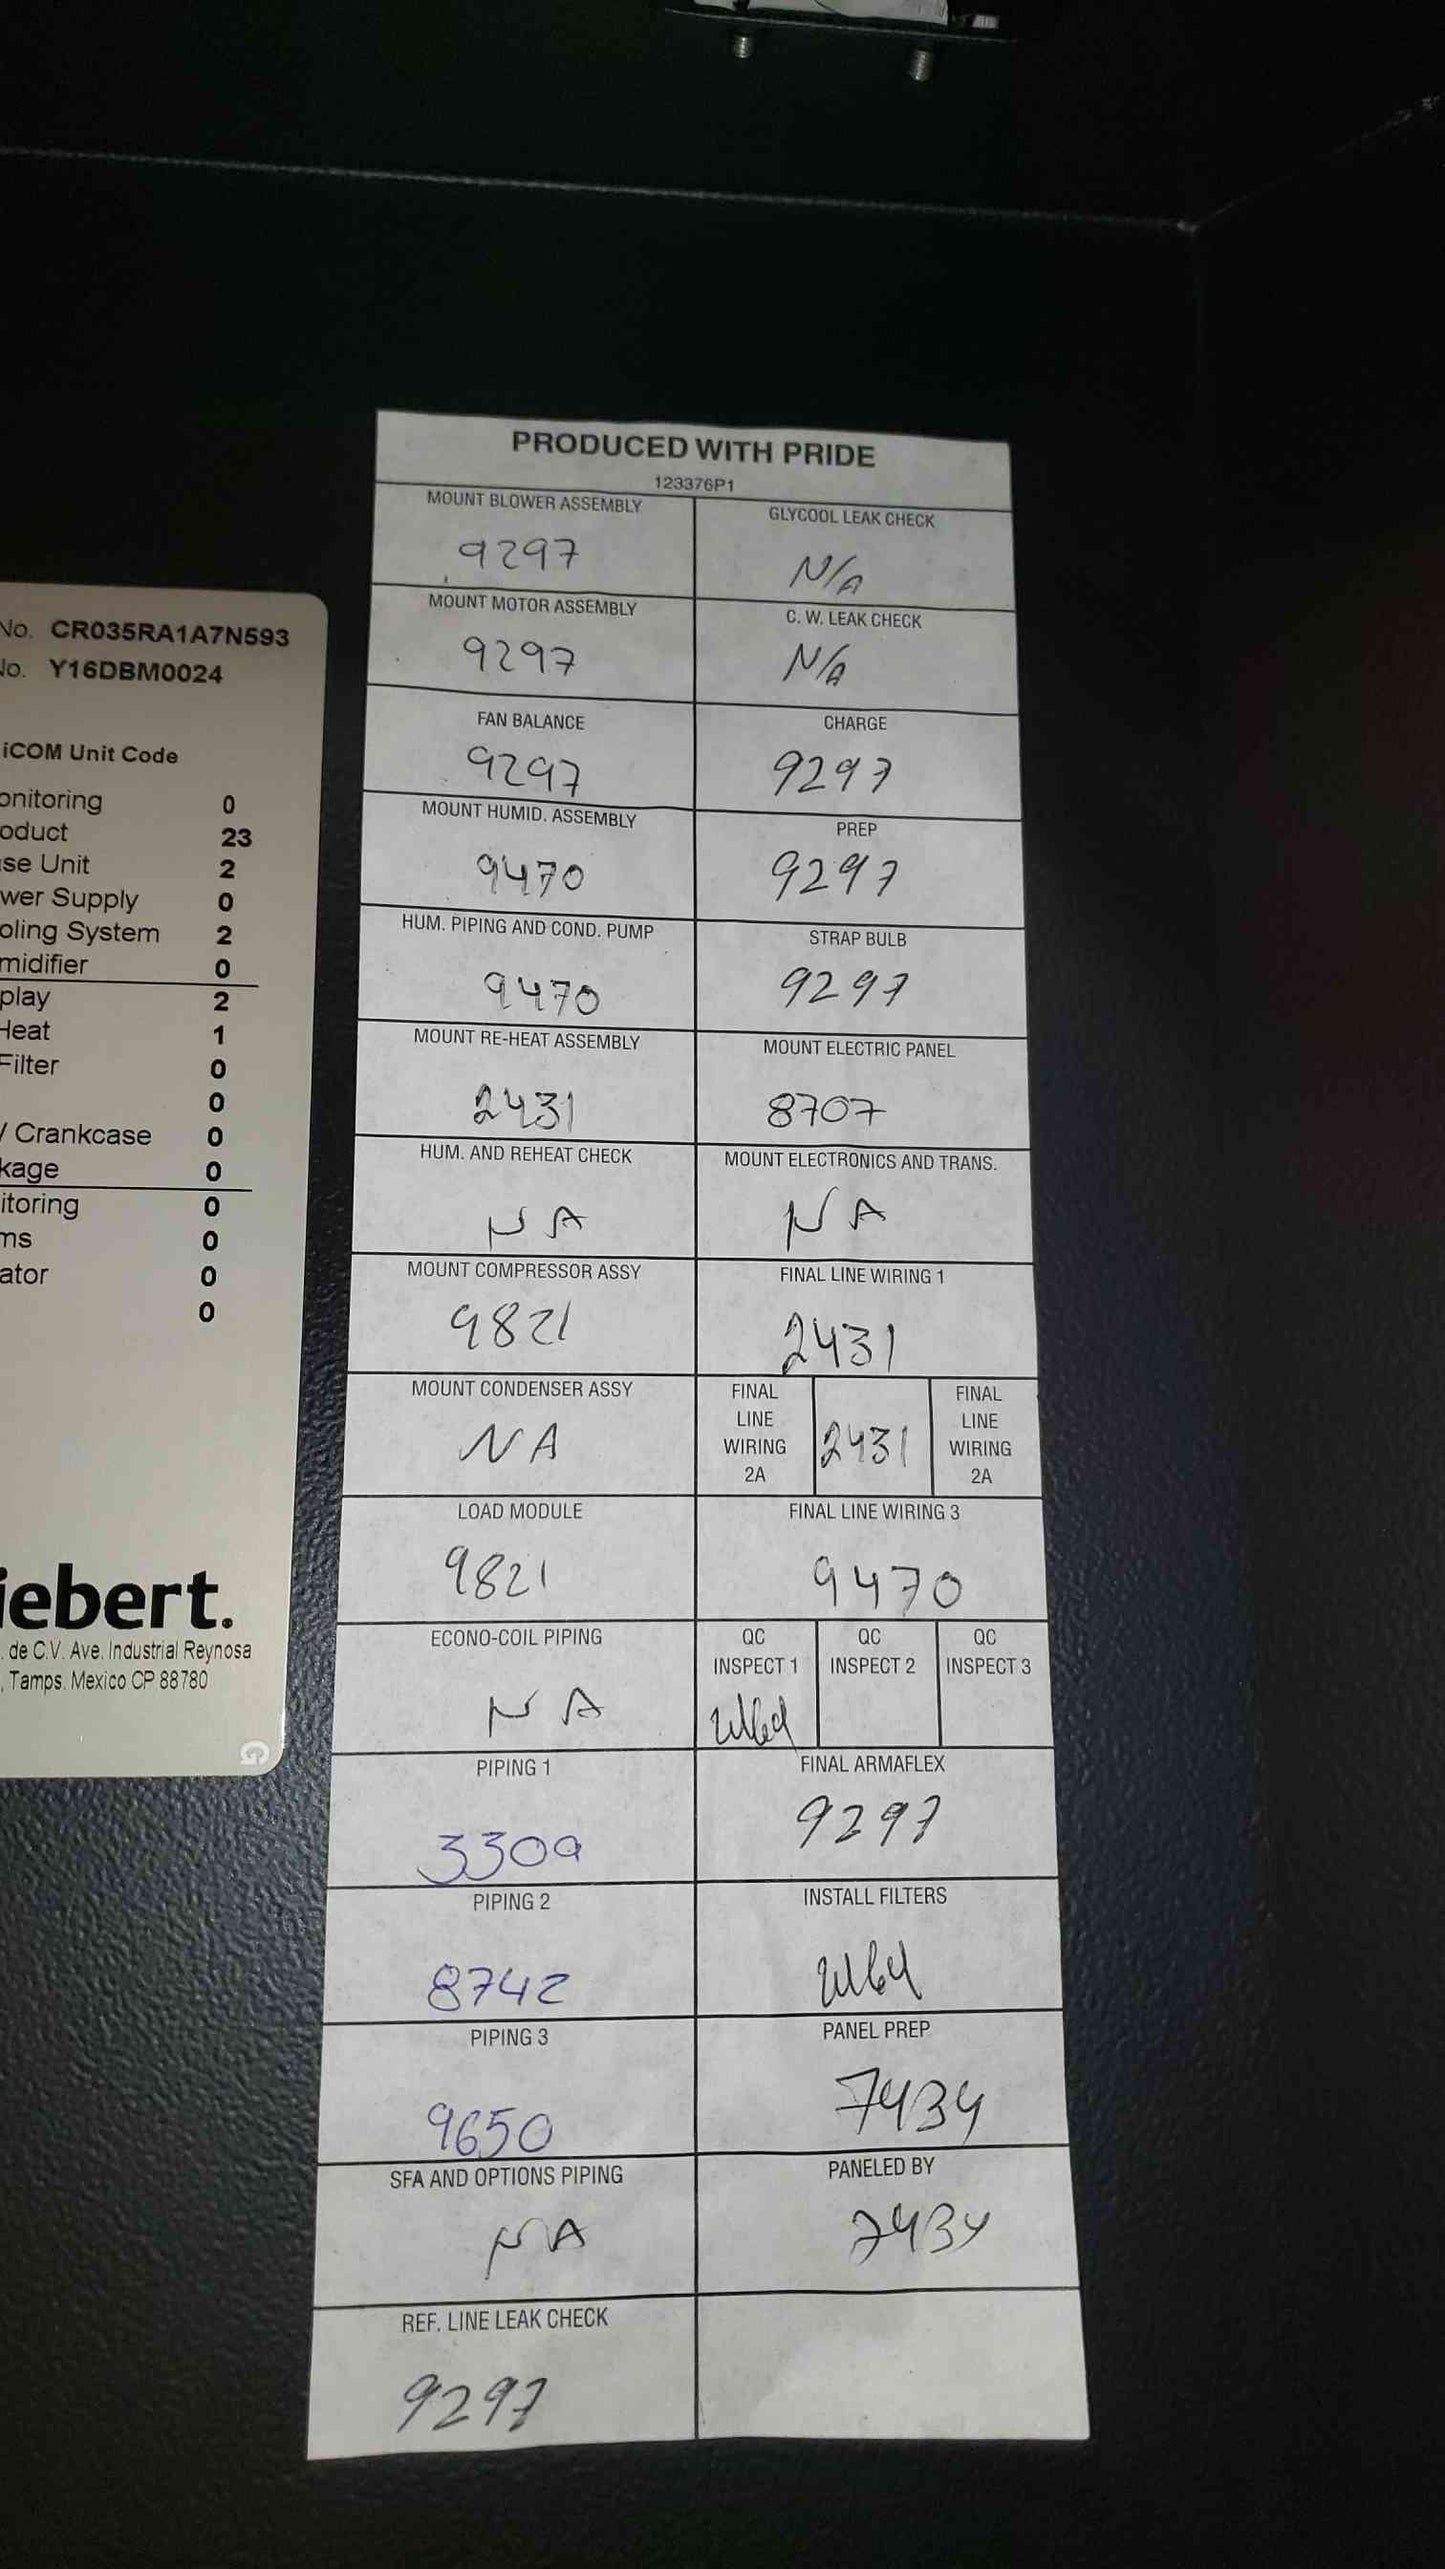 No. CR035RA1A7N593
No. Y16DBM0024
iCOM Unit Code
onitoring 0
oduct 23
se Unit 2
wer Supply 0
oling System 2
midifier 0
play 2
Heat 1
Filter 0
0
/ Crankcase 0
kage 0
itoring 0
ms 0
ator 0
0
iebert.
. de C.V. Ave. Industrial Reynosa
, Tamps. Mexico CP 88780
G
PRODUCED WITH PRIDE
123376P1
MOUNT BLOWER ASSEMBLY
9297
MOUNT MOTOR ASSEMBLY
9297
FAN BALANCE
9297
MOUNT HUMID. ASSEMBLY
9470
HUM. PIPING AND COND. PUMP
9470
MOUNT RE-HEAT ASSEMBLY
2431
HUM. AND REHEAT CHECK
NA
MOUNT COMPRESSOR ASSY
9821
MOUNT CONDENSER ASSY
NA
LOAD MODULE
9821
ECONO-COIL PIPING
NA
PIPING 1
3309
PIPING 2
8742
PIPING 3
9650
SFA AND OPTIONS PIPING
NA
REF. LINE LEAK CHECK
9297
GLYCOOL LEAK CHECK
N/A
C. W. LEAK CHECK
N/A
CHARGE
9297
PREP
9297
STRAP BULB
9297
MOUNT ELECTRIC PANEL
8707
MOUNT ELECTRONICS AND TRANS.
NA
FINAL LINE WIRING 1
2431
FINAL
LINE
WIRING
2A
2431
FINAL
LINE
WIRING
2A
FINAL LINE WIRING 3
9470
QC
INSPECT 1
QC
INSPECT 2
QC
INSPECT 3
FINAL ARMAFLEX
9297
INSTALL FILTERS
PANEL PREP
7434
PANELED BY
7434